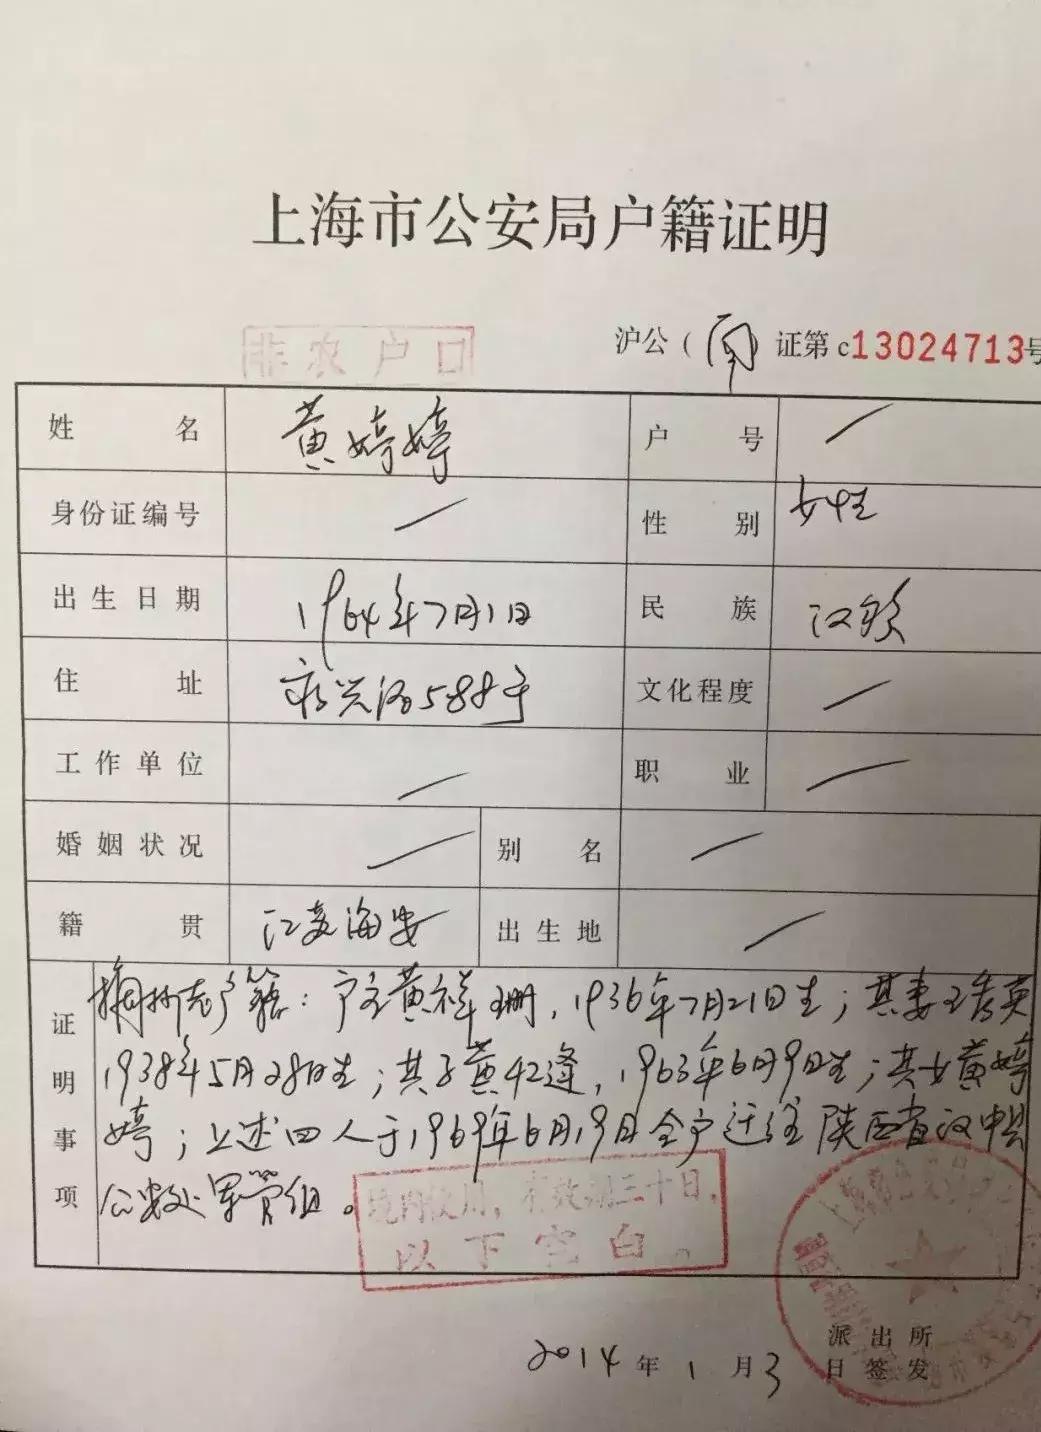 上海市公安局户籍证明
非农户口
沪公( )证第c13024713号
姓名 黄婷婷 户号 /
身份证编号 / 性别 女性
出生日期 1964年7月1日 民族 汉族
住址 永兴路588号 文化程度 /
工作单位 / 职业 /
婚姻状况 / 别名 /
籍贯 江苏海安 出生地 /
证明事项
摘抄老户籍:户主黄祥珊,1936年7月21日生;其妻王秀英
1938年5月28日生;其子黄42逢,1963年6月9日生;其女黄婷
婷;上述四人于1969年6月19日全户迁往陕西省汉中县
公安处军管组。
境内使用,有效期三十日,
以下空白。
派出所
2014年1月3日签发